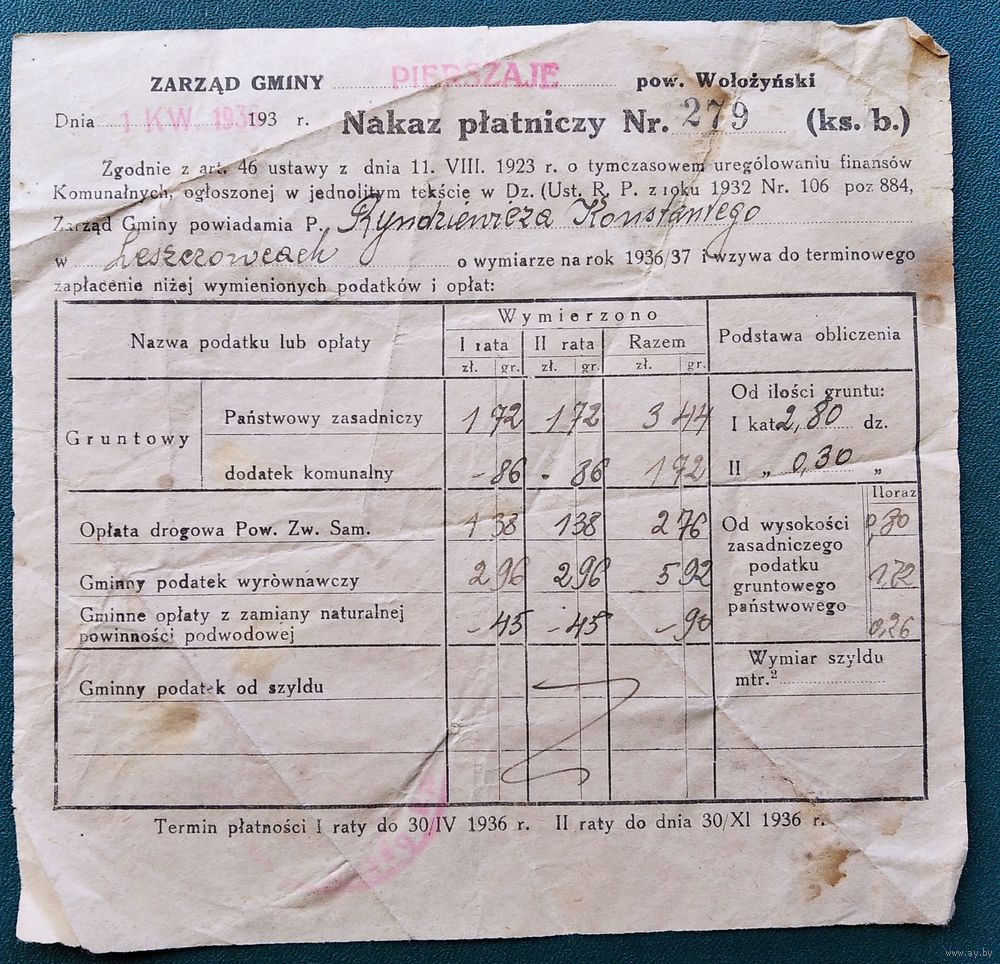 ZARZĄD GMINY PIERSZAJE pow. Wołożyński
Dnia 1 KW. 193 193 r. Nakaz płatniczy Nr. 279 (ks. b.)
Zgodnie z art. 46 ustawy z dnia 11. VIII. 1923 r. o tymczasowem urególowaniu finansów
Komunalnych, ogłoszonej w jednolitym tekście w Dz. (Ust. R. P. z roku 1932 Nr. 106 poz 884,
Zarząd Gminy powiadamia P. Ryndziewicza Konstantego
w Leszczowcach o wymiarze na rok 1936/37 i wzywa do terminowego
zapłacenie niżej wymienionych podatków i opłat:
Nazwa podatku lub opłaty
Wymierzono
I rata II rata Razem
zł. gr. zł. gr. zł. gr.
Podstawa obliczenia
Gruntowy
Państwowy zasadniczy 1 72 1 72 3 44
dodatek komunalny - 86 - 86 1 72
Od ilości gruntu:
I kat 2,80 dz.
II „ 0,30 „
Opłata drogowa Pow. Zw. Sam. 1 38 1 38 2 76
Gminny podatek wyrównawczy 2 96 2 96 5 92
Gminne opłaty z zamiany naturalnej
powinności podwodowej - 45 - 45 - 90
Od wysokości
zasadniczego
podatku
gruntowego
państwowego
Iloraz
0,80
1,72
0,26
Gminny podatek od szyldu
Wymiar szyldu
mtr.²
Termin płatności I raty do 30/IV 1936 r. II raty do dnia 30/XI 1936 r.
www.ay.by